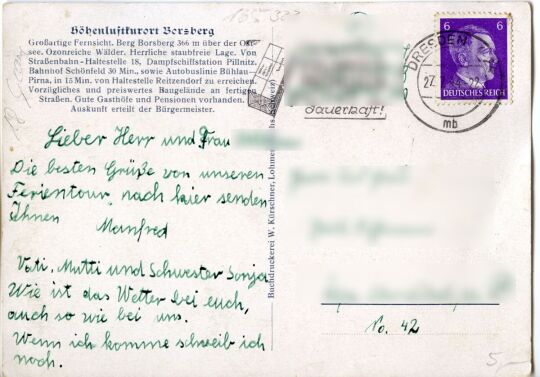 Höhenluftkurort Borsberg
Großartige Fernsicht. Berg Borsberg 366 m über der Ost-
see. Ozonreiche Wälder. Herrliche staubfreie Lage. Von
Straßenbahn-Haltestelle 18, Dampfschiffstation Pillnitz,
Bahnhof Schönfeld 30 Min., sowie Autobuslinie Bühlau-
Pirna, in 15 Min. von Haltestelle Reitzendorf zu erreichen.
Vorzügliches und preiswertes Baugelände an fertigen
Straßen. Gute Gasthöfe und Pensionen vorhanden.
Auskunft erteilt der Bürgermeister.
Lieber Herr und Frau
Die besten Grüße von unseren
Ferientour, nach hier senden
Ihnen
Manfred
Vati, Mutti und Schwester Sonja
Wie ist das Wetter bei euch,
auch so wie bei uns.
Wenn ich komme schreib ich
noch.
Buchdruckerei W. Kürschner, Lohmen
dauerhaft!
DRESDEN
27.
mb
6 6
DEUTSCHES REICH
No. 42
5,—